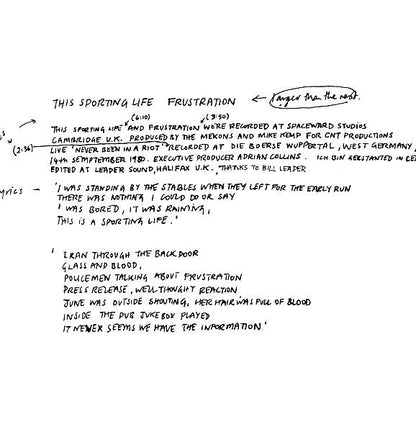 THIS SPORTING LIFE FRUSTRATION ← larger than the rest.
(6:10) (3:50)
THIS SPORTING LIFE AND FRUSTRATION WERE RECORDED AT SPACEWARD STUDIOS
CAMBRIDGE U.K. PRODUCED BY THE MEKONS AND MIKE KEMP FOR CNT PRODUCTIONS
(2:36) LIVE 'NEVER BEEN IN A RIOT' RECORDED AT DIE BOERSE WUPPERTAL, WEST GERMANY,
14TH SEMPTEMBER 1980. EXECUTIVE PRODUCER ADRIAN COLLINS. ICH BIN
EDITED AT LEADER SOUND, HALIFAX U.K. THANKS TO BILL LEADER
yrics – 'I WAS STANDING BY THE STABLES WHEN THEY LEFT FOR THE EARLY RUN
THERE WAS NOTHING I COULD DO OR SAY
I WAS BORED, IT WAS RAINING,
THIS IS A SPORTING LIFE.'
'I RAN THROUGH THE BACK DOOR
GLASS AND BLOOD,
POLICEMEN TALKING ABOUT FRUSTRATION
PRESS RELEASE, WELL THOUGHT REACTION
JUNE WAS OUTSIDE SHOUTING, HER HAIR WAS FULL OF BLOOD
INSIDE THE PUB JUKEBOX PLAYED
IT NEVER SEEMS WE HAVE THE INFORMATION.'